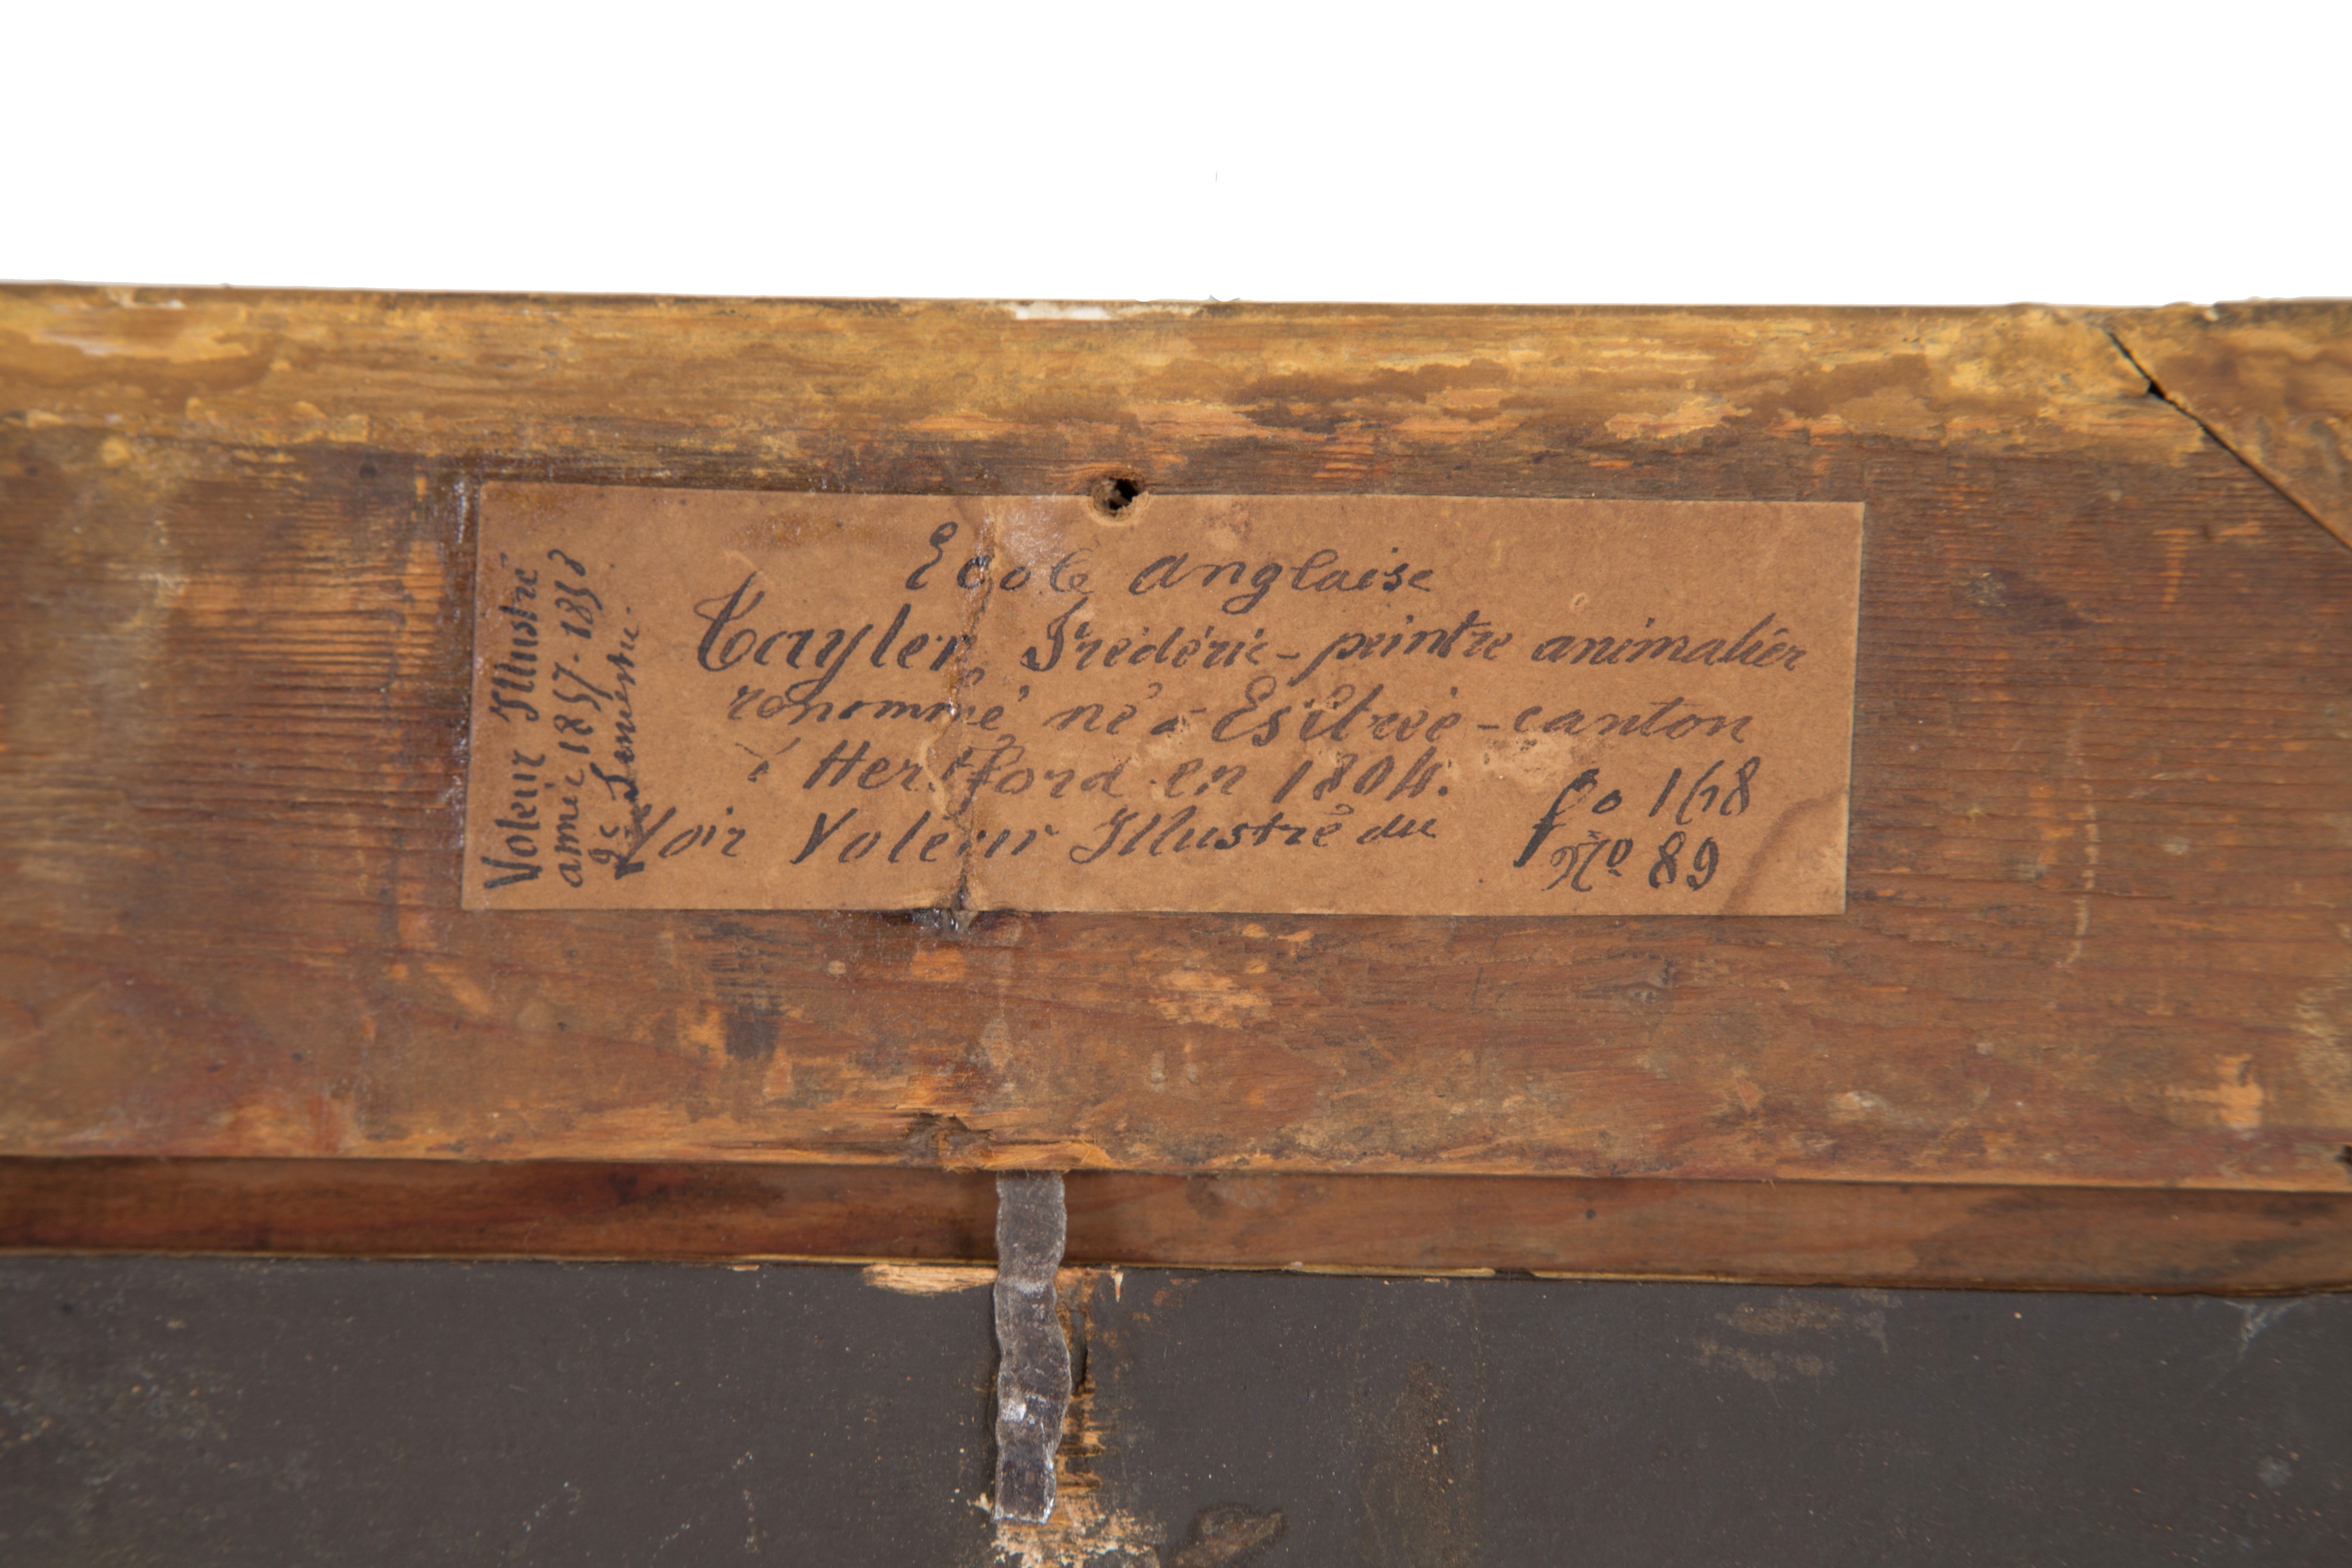 Ecole anglaise
Tayler, Frédéric - peintre animalier
renommé né à - canton
d' Hertford en 1804.
Voir Voleur Illustré du
fo 168
No 89
Voleur Illustré
année 1857-1858
2e Semestre.